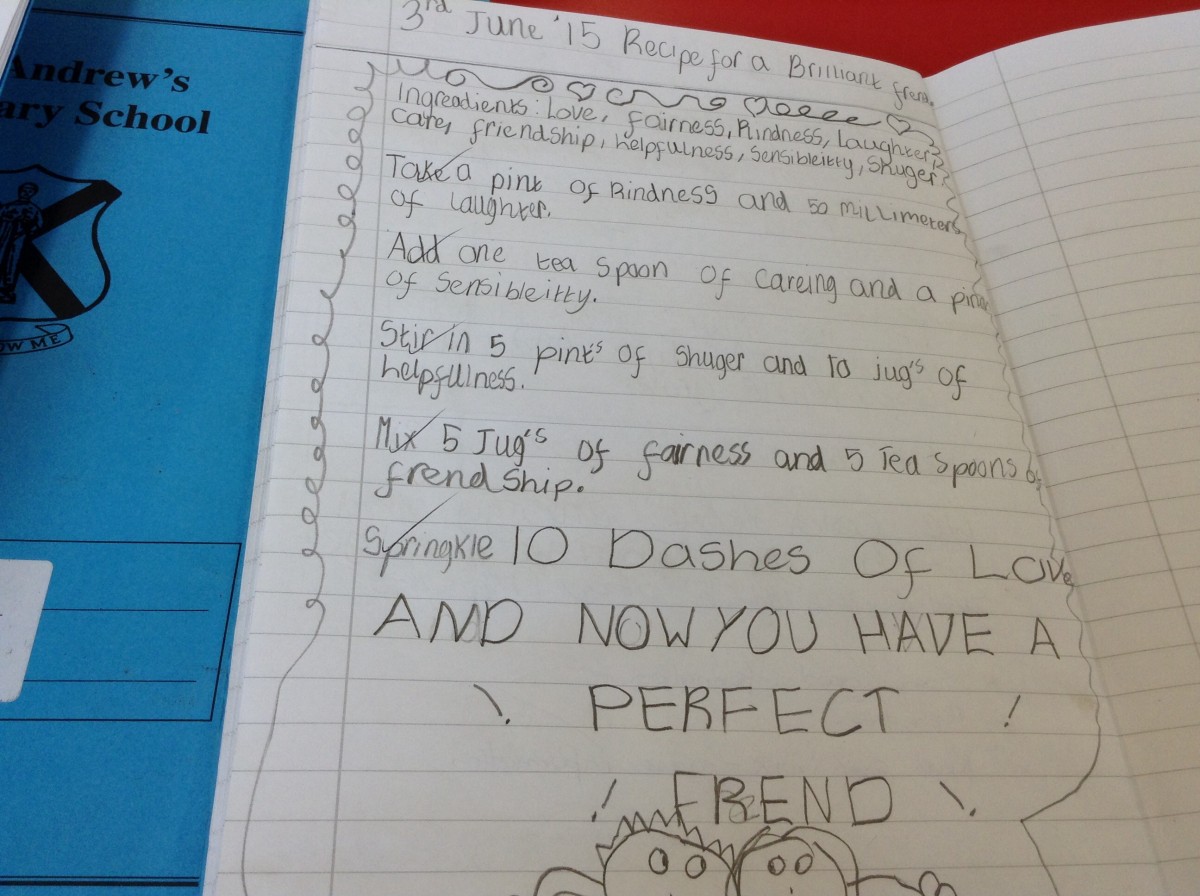 Andrew's
ary School
OW ME
3rd June '15 Recipe for a Brilliant frend.
Ingreadients: Love, fairness, Kindness, Laughter,
care, friendship, helpfulness, Sensibleitty, Shuger.
Take a pint of Kindness and 50 millimeters
of laughter.
Add one tea spoon of careing and a pint
of Sensibleitty.
Stir in 5 pint's of Shuger and 10 jug's of
helpfullness.
Mix 5 Jug's of fairness and 5 Tea Spoons of
frendship.
Springkle 10 Dashes Of Love
AND NOW YOU HAVE A
! PERFECT !
! FREND !